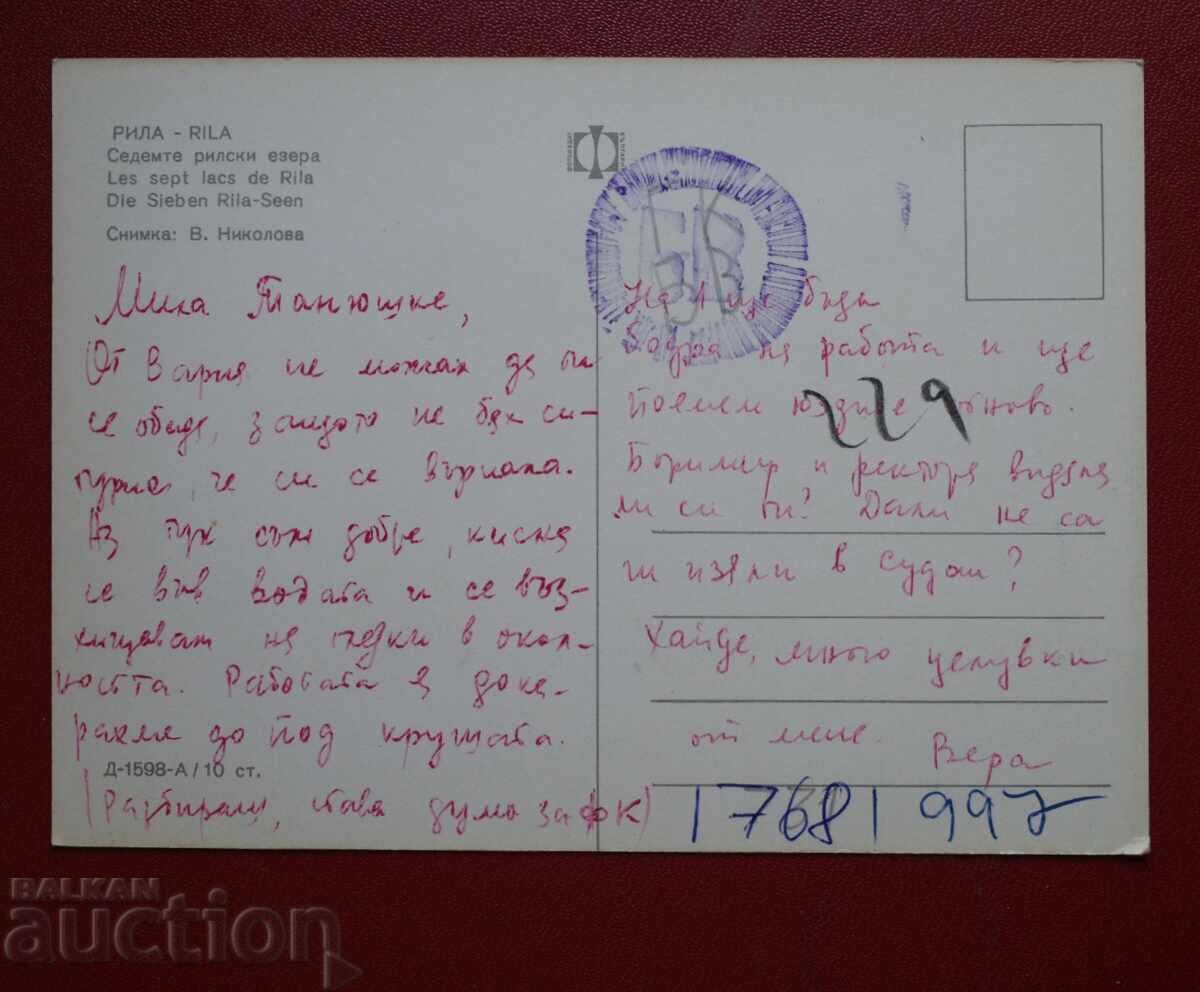 РИЛА - RILA
Седемте рилски езера
Les sept lacs de Rila
Die Sieben Rila-Seen
Снимка: В. Николова
Мила Танюшке,
От Варна не можах да ти
се обадя, защото не бях си-
гурна, че си се върнала.
Аз тук съм добре, кисна
се във водата и се въз-
хищавам на гледки в окол-
ността. Работата я дока-
рахме до под крушата.
(Разбираш, става дума за ФК)
На 1 ще бъда
бодра на работа и ще
поемем юздите отново.
Боримир и ректора видяла
ли си ги? Дали не са
ги изяли в Судан?
Хайде, много целувки
от мене. Вера
229
Д-1598-А/10 ст.
17681997
BALKAN
auction